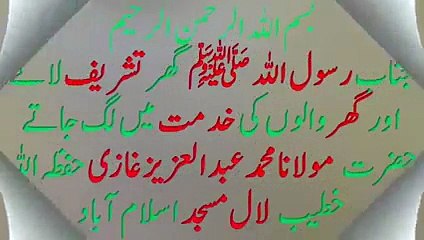 بسم اللہ الرحمن الرحیم
جناب رسول اللہ ﷺ گھر تشریف لاتے
اور گھر والوں کی خدمت میں لگ جاتے
حضرت مولانا محمد عبدالعزیز غازی حفظہ اللہ
خطیب لال مسجد اسلام آباد